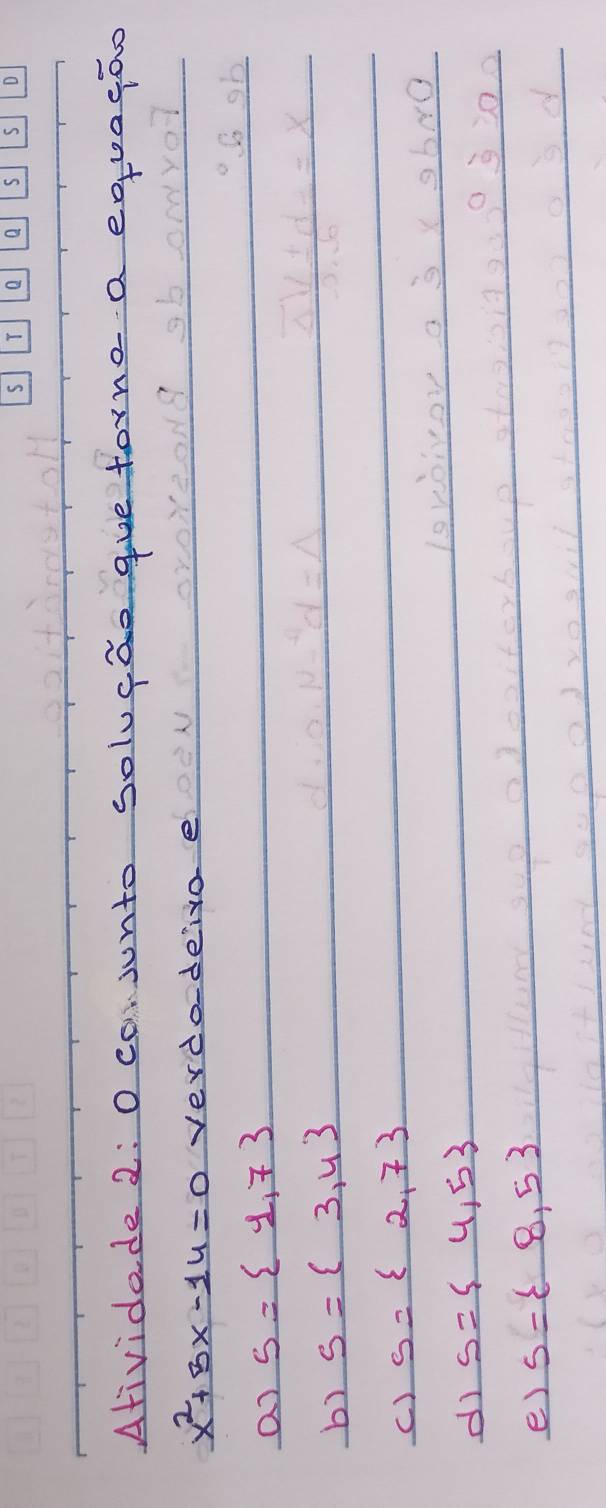 S T Q Q S S D
Atividade 2: O conjunto solução que torna a equação
x²+5x-14=0 verdadeira e
a) S={ 1,7}
b) S={ 3,4}
c) S={ 2,7}
d) S={ 4,5}
e) S={ 8,5}